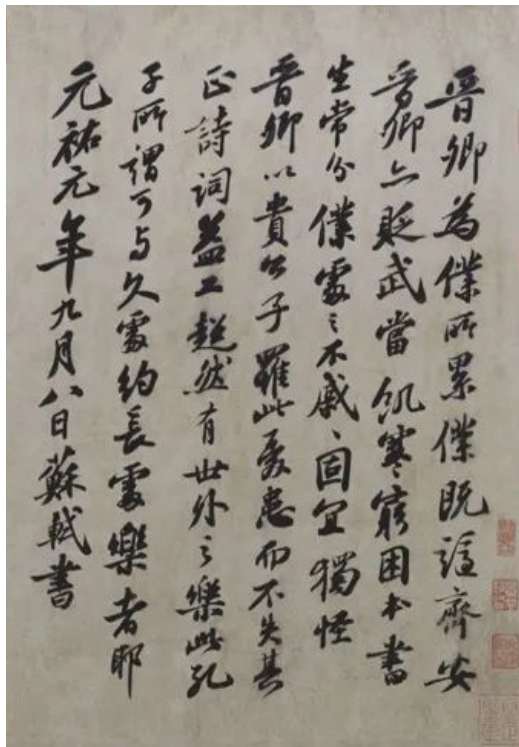 晉卿為僕所累僕既謫齊安
晉卿亦貶武當飢寒窮困本書
生常分僕處〻不戚〻固宜獨怪
晉卿以貴公子罹此憂患而不失其
正詩詞益工超然有世外之樂此孔
子所謂可与久處約長處樂者耶
元祐元年九月八日蘇軾書